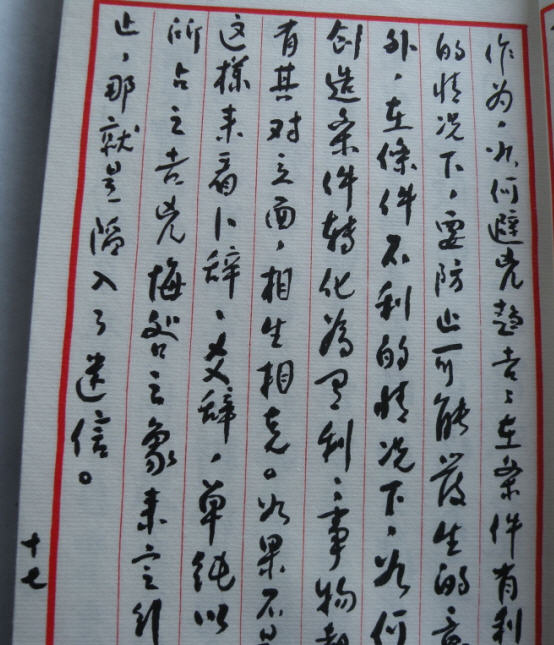 作为，如何避凶趋吉；在条件有利
的情况下，要防止可能发生的意
外，在條件不利的情况下，如何
创造条件转化為有利；事物都
有其对立面，相生相克。如果不是
这樣来看卜辞、爻辞，单纯以
所占之吉凶悔咎之象来定行
止，那就是陷入了迷信。
十七